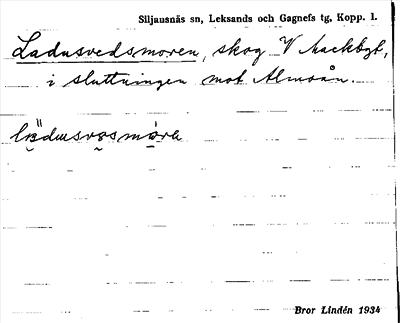 Siljansnäs sn, Leksands och Gagnefs tg, Kopp. l.
Ladusvedsmoren, skog V Hackbyt,
i sluttningen mot Almoån.
Bror Lindén 1934